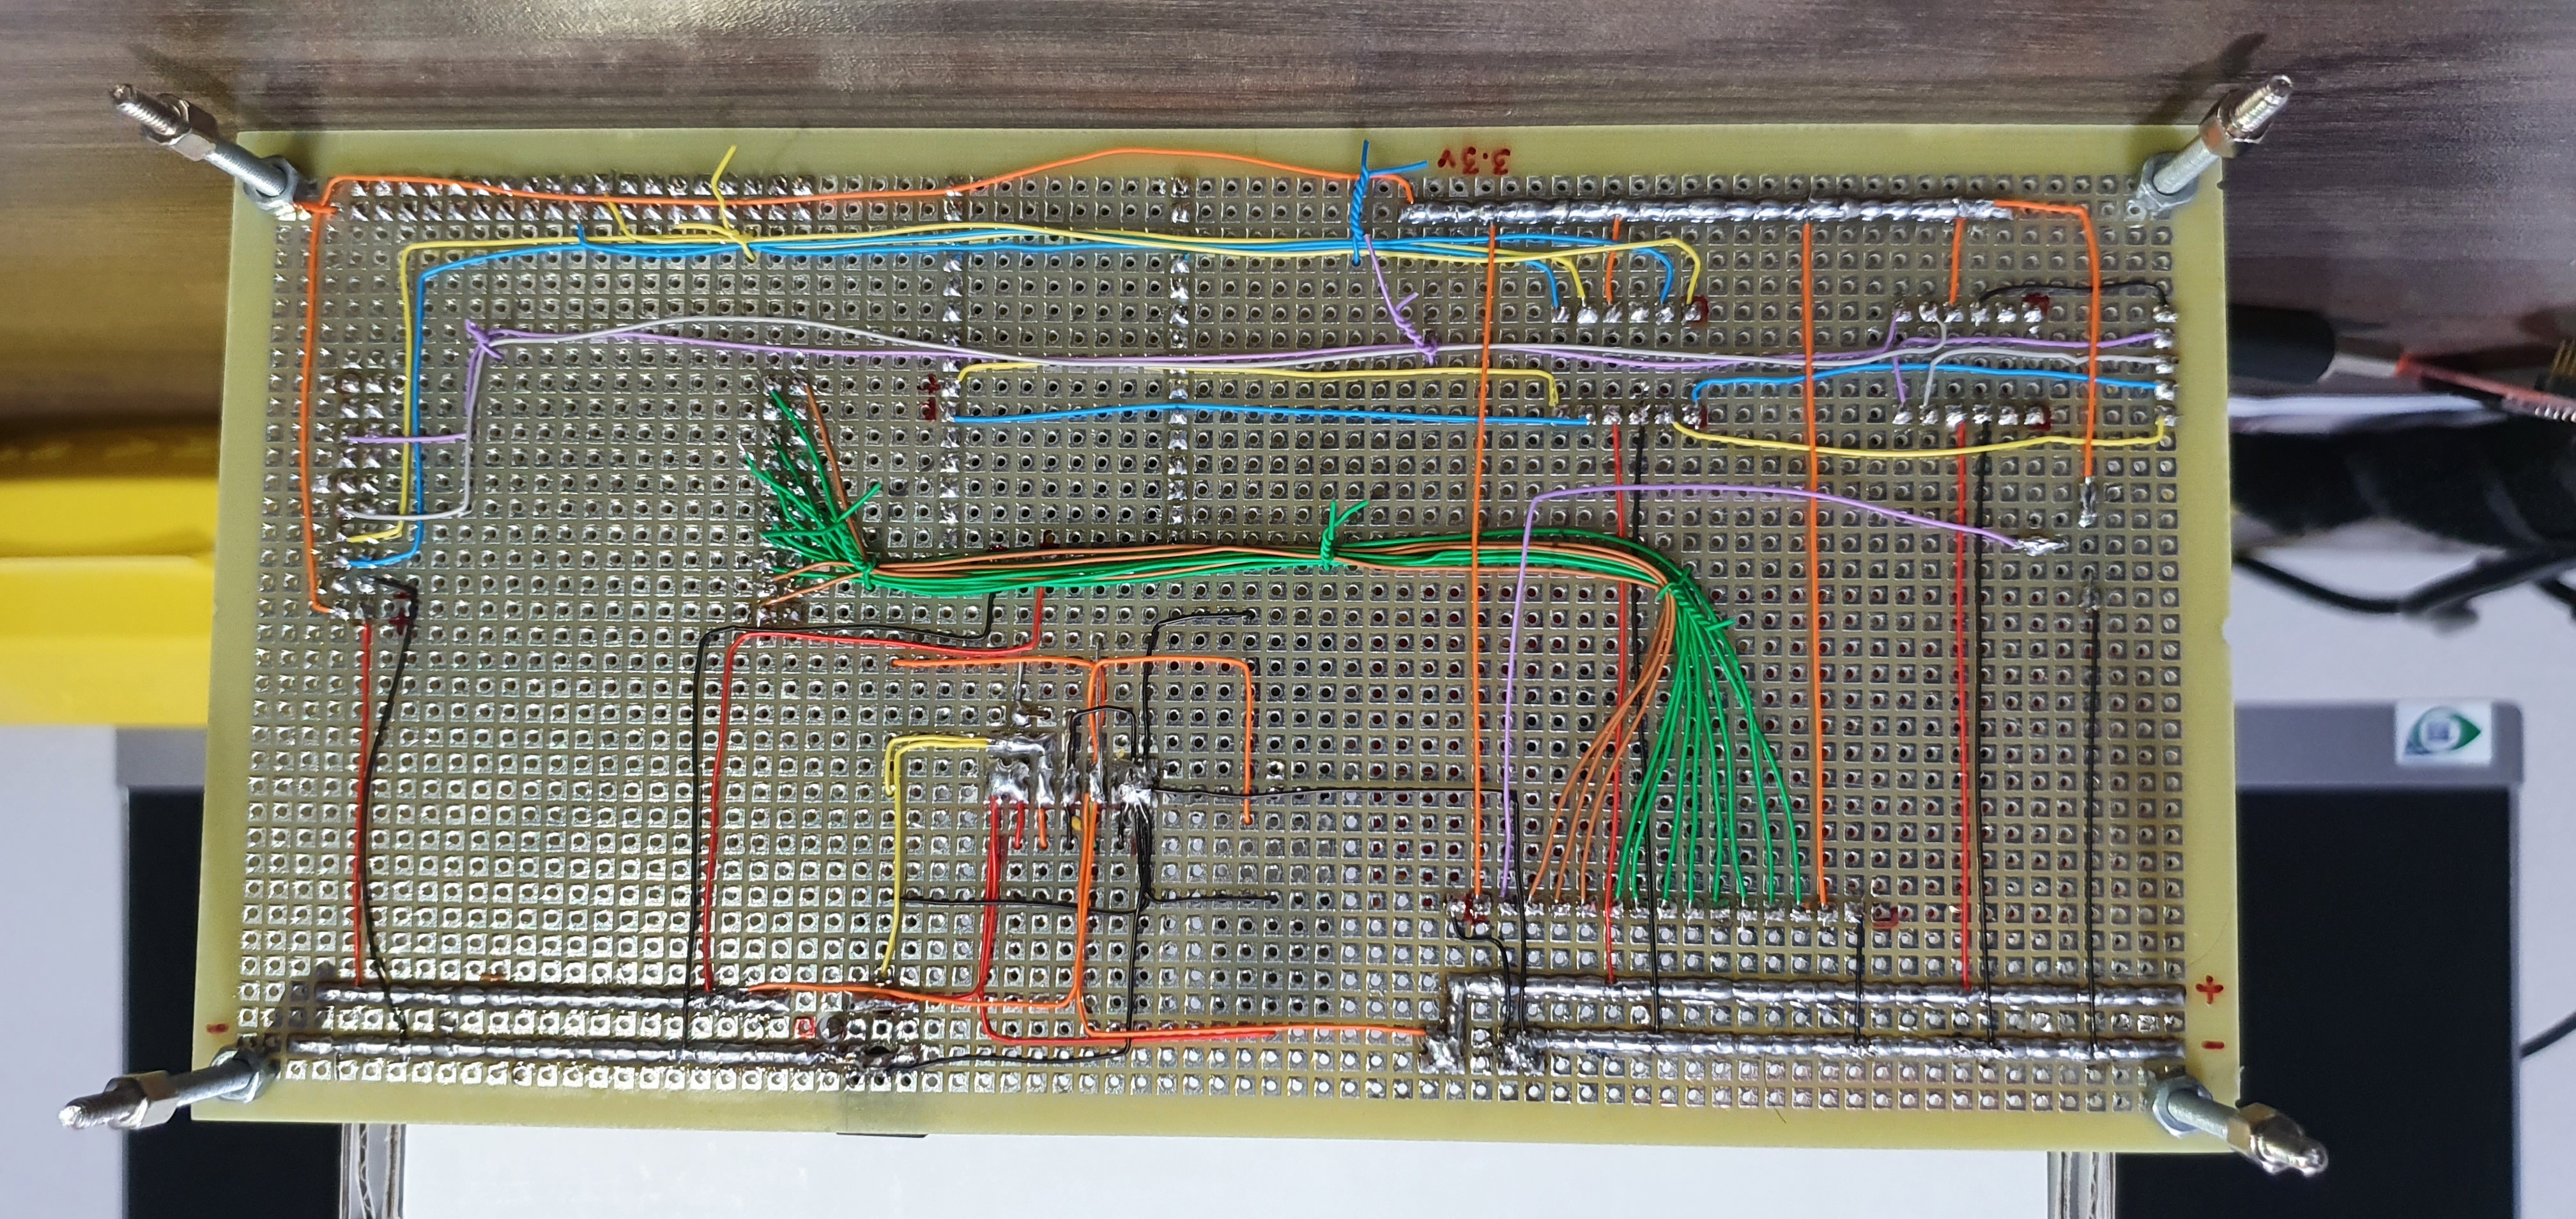 -
-
+
3.3v